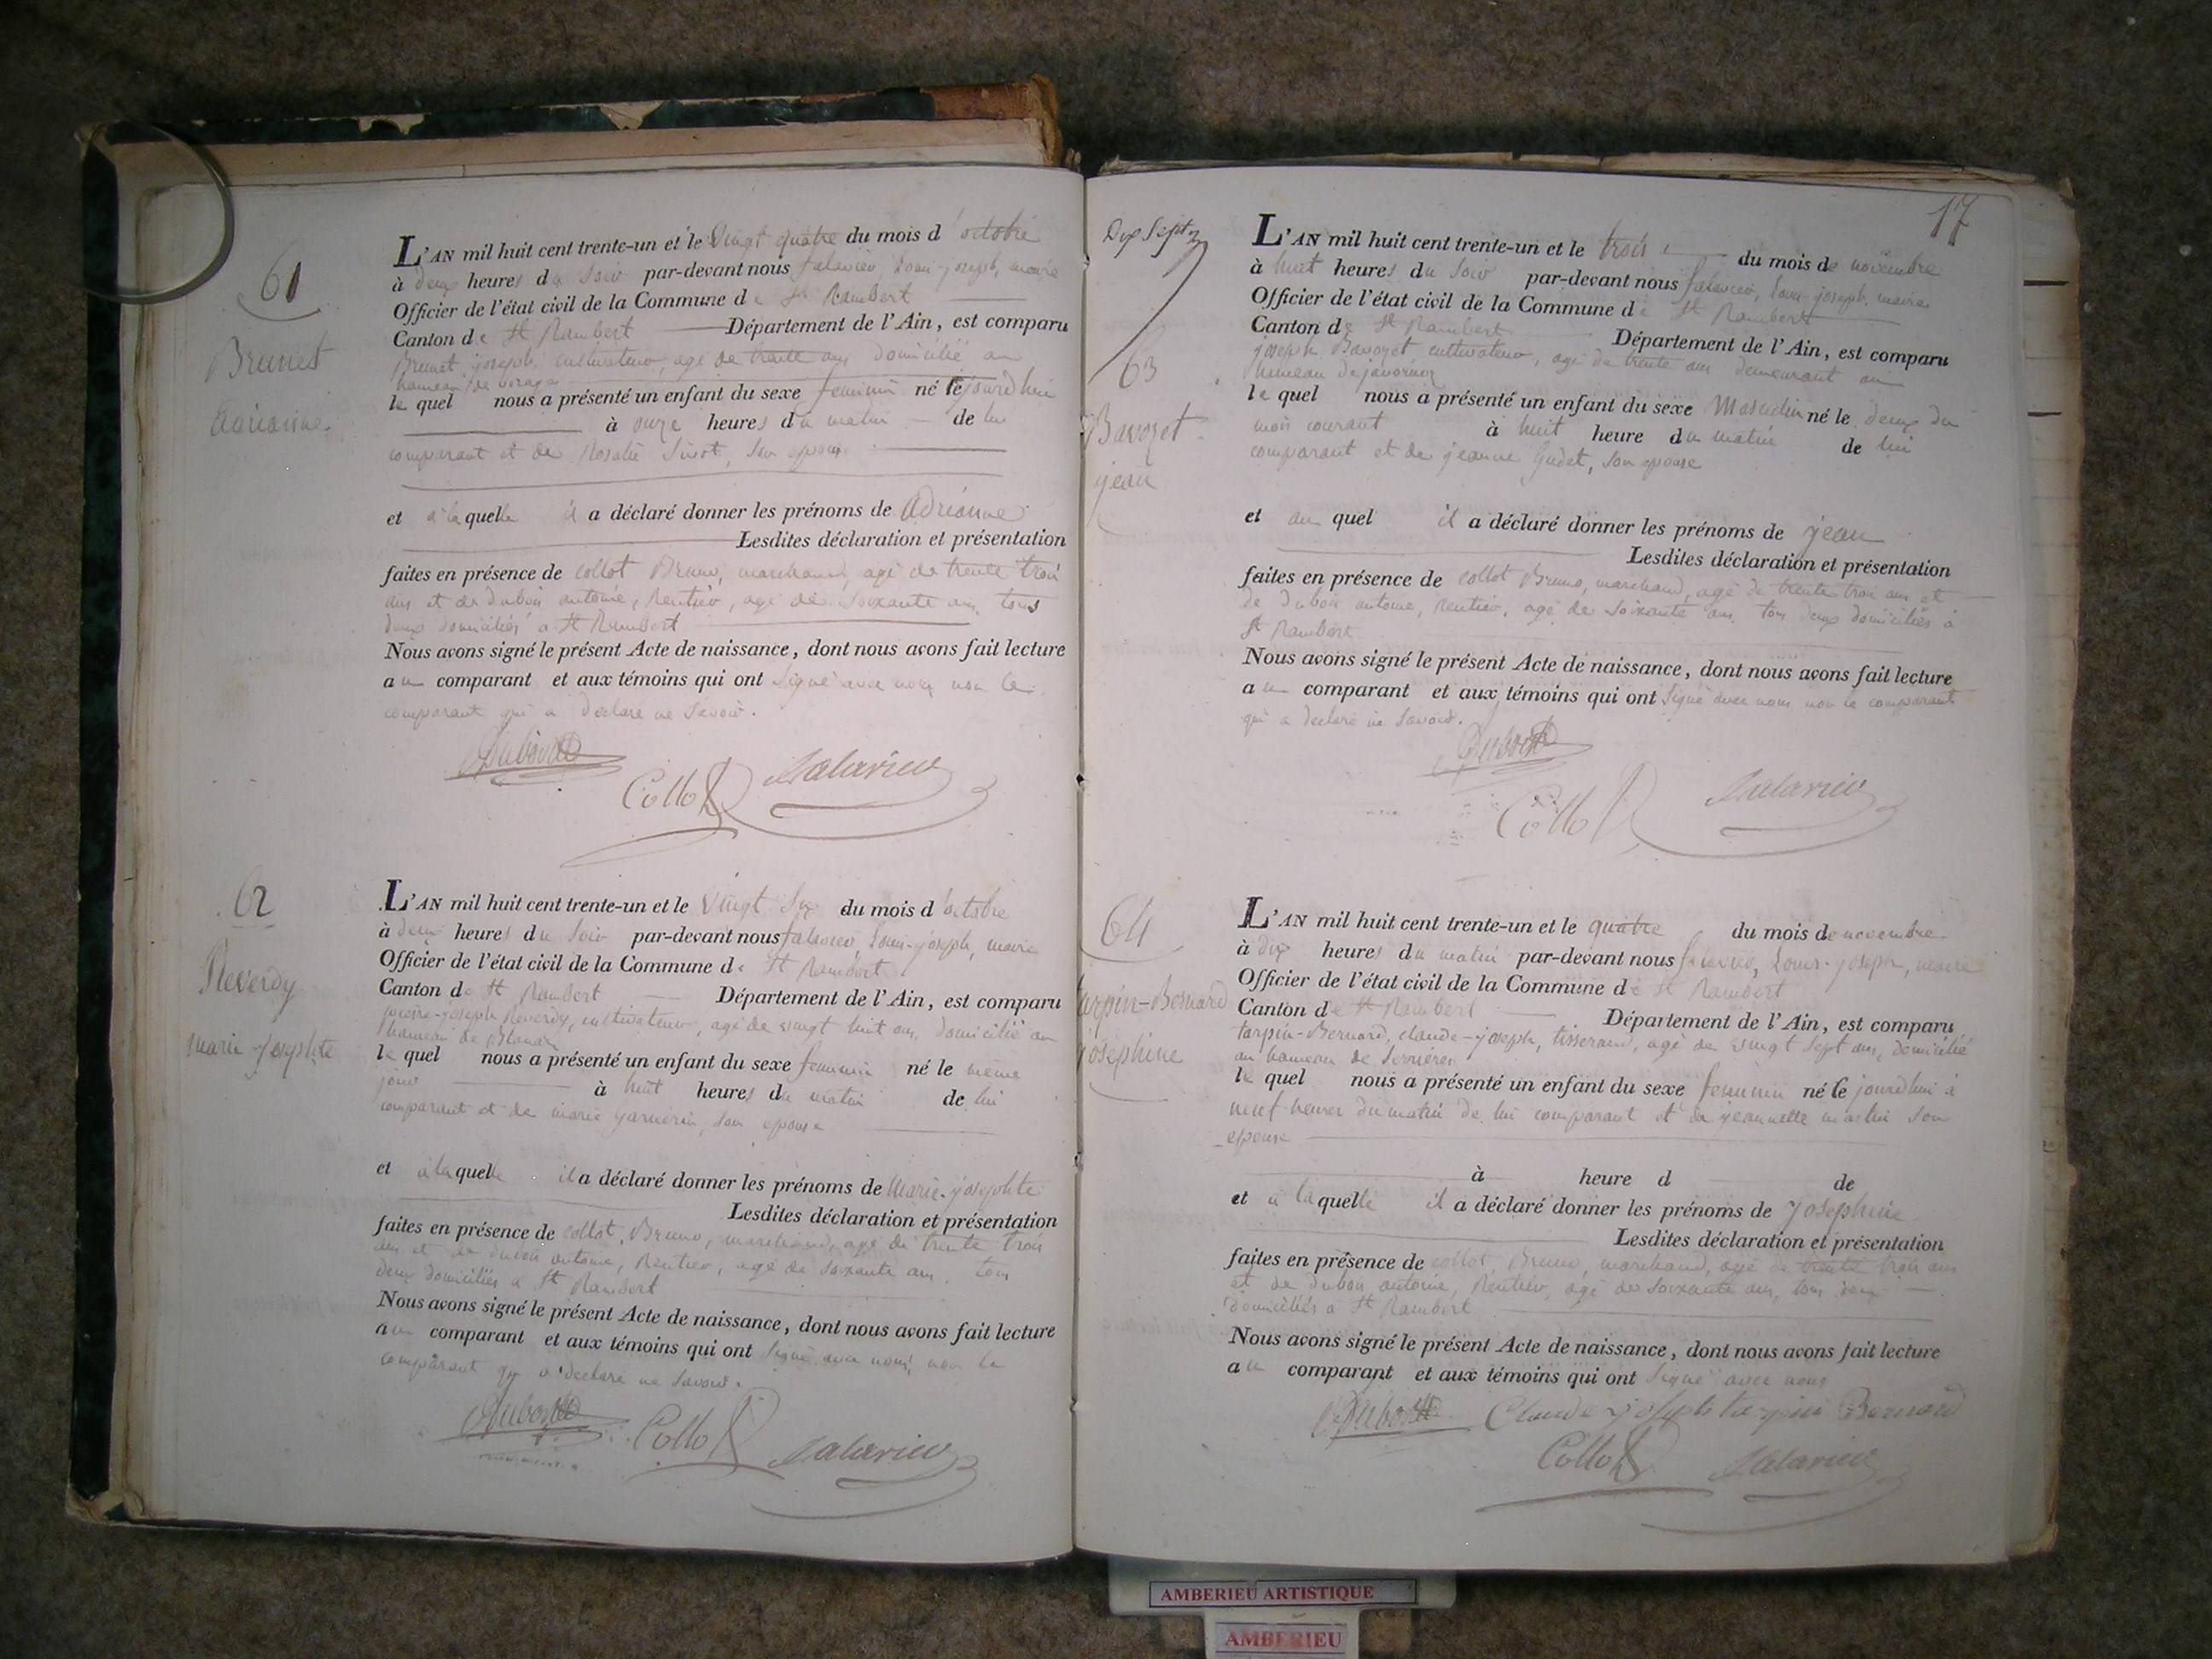 61
Brunet
Adrianne.
L'AN mil huit cent trente-un et le vingt quatre du mois d'octobre
à deux heures du soir par-devant nous falavier, Louis-joseph, maire
Officier de l'état civil de la Commune de St Rambert
Canton de St Rambert Département de l'Ain, est comparu
Brunet, joseph, cultivateur, agé de trente ans domicilié au
hameau de
le quel nous a présenté un enfant du sexe feminin né le jourd'hui
à onze heures du matin de lui
comparant et de Rosalie son epouse
et à la quelle il a déclaré donner les prénoms de Adrianne
Lesdites déclaration et présentation
faites en présence de collot Bruno, marchand, agé de trente trois
ans et de dubois antoine, Rentier, agé de soixante ans, tous
deux domiciliés à St Rambert
Nous avons signé le présent Acte de naissance, dont nous avons fait lecture
au comparant et aux témoins qui ont signé avec nous non le
comparant qui a declaré ne savoir.
Dubois
Collot
falavier
62
Reverdy
marie-josephte
L'AN mil huit cent trente-un et le vingt six du mois d'octobre
à deux heures du soir par-devant nous falavier, Louis-joseph, maire
Officier de l'état civil de la Commune de St Rambert
Canton de St Rambert Département de l'Ain, est comparu
joseph Reverdy, cultivateur, agé de vingt huit ans, domicilié au
hameau de Blanaz
le quel nous a présenté un enfant du sexe feminin né le même
jour à huit heures du matin de lui
comparant et de marie garnerin, son epouse
et à la quelle il a déclaré donner les prénoms de Marie-josephte
Lesdites déclaration et présentation
faites en présence de collot, Bruno, marchand, agé de trente trois
ans et de dubois antoine, Rentier, agé de soixante ans, tous
deux domiciliés à St Rambert
Nous avons signé le présent Acte de naissance, dont nous avons fait lecture
au comparant et aux témoins qui ont signé avec nous, non le
comparant qui a declaré ne savoir.
Dubois
Collot
falavier
17
Dix Sept
63
Bavozet
jean
L'AN mil huit cent trente-un et le trois du mois de novembre
à huit heures du soir par-devant nous falavier, Louis-joseph, maire
Officier de l'état civil de la Commune de St Rambert
Canton de St Rambert Département de l'Ain, est comparu
joseph Bavozet, cultivateur, agé de trente ans demeurant au
hameau de javornoz
le quel nous a présenté un enfant du sexe Masculin né le deux du
mois courant à huit heure du matin de lui
comparant et de jeanne Gudet, son epouse
et au quel il a déclaré donner les prénoms de jean
Lesdites déclaration et présentation
faites en présence de collot Bruno, marchand, agé de trente trois ans et
de dubois antoine, Rentier, agé de soixante ans, tous deux domiciliés à
St Rambert
Nous avons signé le présent Acte de naissance, dont nous avons fait lecture
au comparant et aux témoins qui ont signé avec nous non le comparant
qui a declaré ne savoir.
Dubois
Collot
falavier
64
tarpin-Bernard
josephine
L'AN mil huit cent trente-un et le quatre du mois de novembre
à dix heures du matin par-devant nous falavier, Louis-joseph, maire
Officier de l'état civil de la Commune de St Rambert
Canton de St Rambert Département de l'Ain, est comparu
tarpin-Bernard, claude-joseph, tisserand, agé de vingt sept ans, domicilié
au hameau de Serrieres
le quel nous a présenté un enfant du sexe feminin né le jourd'hui à
neuf heures du matin de lui comparant et de jeannette martin son
epouse
à heure d de
et à la quelle il a déclaré donner les prénoms de josephine
Lesdites déclaration et présentation
faites en présence de collot, Bruno, marchand, agé de trente trois ans
et de dubois antoine, Rentier, agé de soixante ans, tous deux
domiciliés à St Rambert
Nous avons signé le présent Acte de naissance, dont nous avons fait lecture
au comparant et aux témoins qui ont signé avec nous
Dubois Claude joseph tarpin Bernard
Collot
falavier
AMBERIEU ARTISTIQUE
AMBERIEU